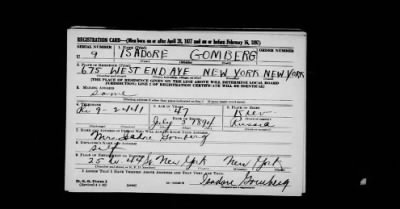 REGISTRATION CARD—(Men born on or after April 28, 1877 and on or before February 16, 1897)
SERIAL NUMBER 1. NAME (Print) ORDER NUMBER
U 9 ISADORE GOMBERG
2. PLACE OF RESIDENCE (Print)
675 WEST END AVE NEW YORK NEW YORK
[THE PLACE OF RESIDENCE GIVEN ON THE LINE ABOVE WILL DETERMINE LOCAL BOARD
JURISDICTION; LINE 2 OF REGISTRATION CERTIFICATE WILL BE IDENTICAL]
3. MAILING ADDRESS
Same
4. TELEPHONE 5. AGE IN YEARS 6. PLACE OF BIRTH
47 Kiev
DATE OF BIRTH
July 3 1894 Russia
7. NAME AND ADDRESS OF PERSON WHO WILL ALWAYS KNOW YOUR ADDRESS
Mrs. Isadore Gomberg
8. EMPLOYER'S NAME AND ADDRESS
Self
9. PLACE OF EMPLOYMENT OR BUSINESS
New York New York
I AFFIRM THAT I HAVE VERIFIED ABOVE ANSWERS AND THAT THEY ARE TRUE.
D. S. S. Form 1
Isadore Gomberg